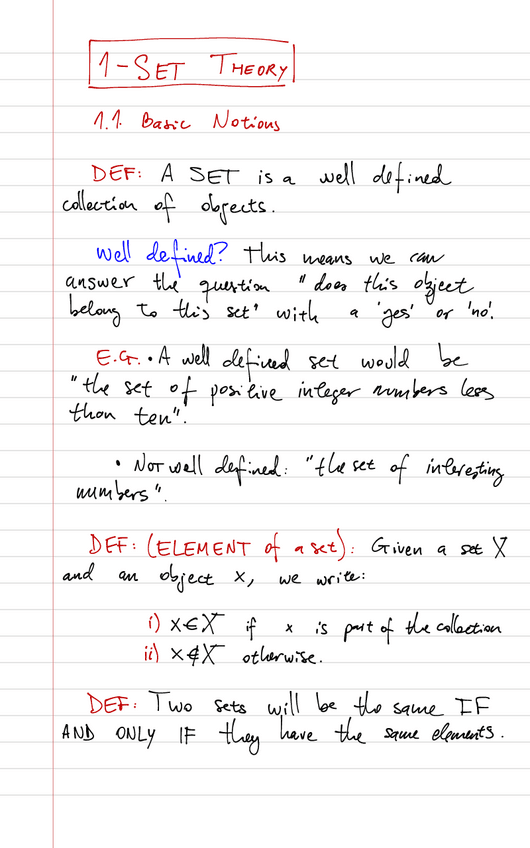 1-SET THEORY
1.1. Basic Notions
DEF: A SET is a well defined
collection of objects.
Well defined? This means we can
answer the question "does this object
belong to this set" with a 'yes' or 'no'.
E.G. • A well defined set would be
"the set of positive integer numbers less
than ten".
• NOT well defined: "the set of interesting
numbers".
DEF: (ELEMENT of a set): Given a set X
and an object x, we write:
i) x∈X if x is part of the collection
ii) x∉X otherwise.
DEF: Two sets will be the same IF
AND ONLY IF they have the same elements.